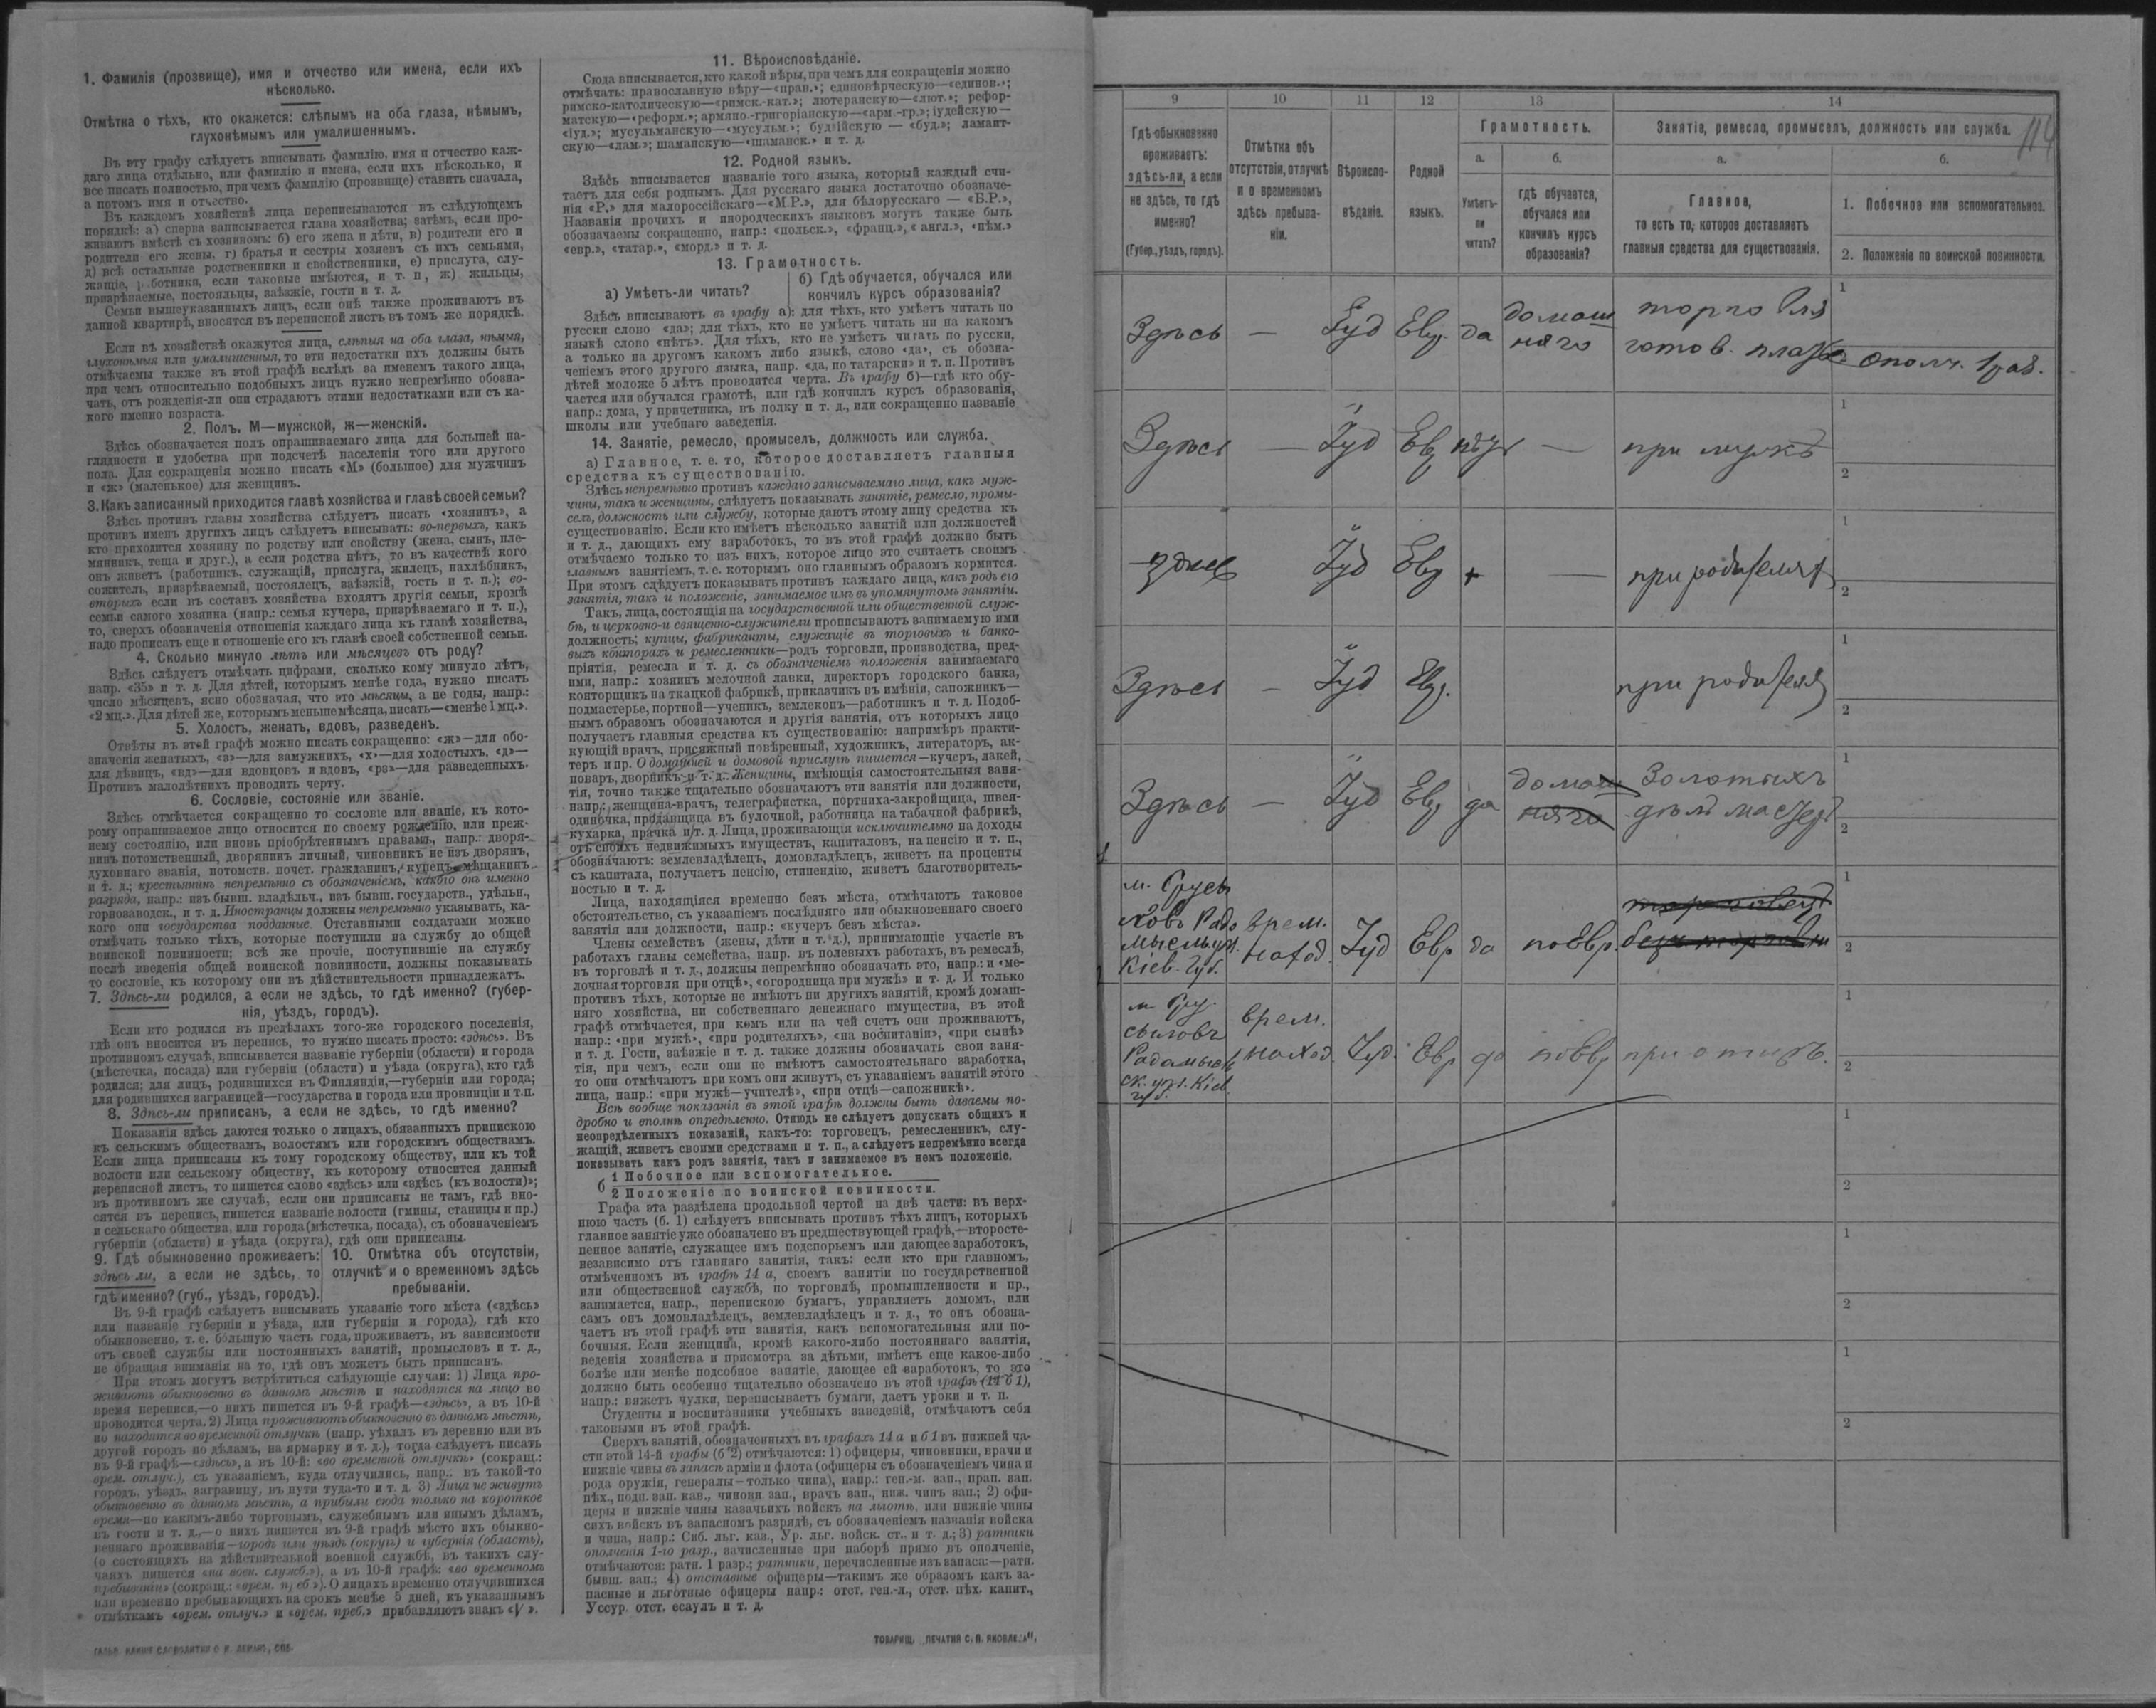 1. Фамилія (прозвище), имя и отчество или имена, если ихъ
нѣсколько.
Отмѣтка о тѣхъ, кто окажется: слѣпымъ на оба глаза, нѣмымъ,
глухонѣмымъ или умалишеннымъ.
Въ эту графу слѣдуетъ вписывать фамилію, имя и отчество каж-
даго лица отдѣльно, или фамилію и имена, если ихъ нѣсколько, и
все писать полностью, при чемъ фамилію (прозвище) ставить сначала,
а потомъ имя и отчество.
Въ каждомъ хозяйствѣ лица переписываются въ слѣдующемъ
порядкѣ: а) сперва записывается глава хозяйства; затѣмъ, если про-
живаютъ вмѣстѣ съ хозяиномъ: б) его жена и дѣти, в) родители его и
родители его жены, г) братья и сестры хозяевъ съ ихъ семьями,
д) всѣ остальные родственники и свойственники, е) прислуга, слу-
жащіе, работники, если таковые имѣются, и т. п., ж) жильцы,
призрѣваемые, постояльцы, заѣзжіе, гости и т. д.
Семьи вышеуказанныхъ лицъ, если онѣ также проживаютъ въ
данной квартирѣ, вносятся въ переписной листъ въ томъ же порядкѣ.
Если въ хозяйствѣ окажутся лица, слѣпыя на оба глаза, нѣмыя,
глухонѣмыя или умалишенныя, то эти недостатки ихъ должны быть
отмѣчаемы также въ этой графѣ вслѣдъ за именемъ такого лица,
при чемъ относительно подобныхъ лицъ нужно непремѣнно обозна-
чать, отъ рожденія-ли они страдаютъ этими недостатками или съ ка-
кого именно возраста.
2. Полъ, М—мужской, ж—женскій.
Здѣсь обозначается полъ опрашиваемаго лица для большей на-
глядности и удобства при подсчетѣ населенія того или другого
пола. Для сокращенія можно писать «М» (большое) для мужчинъ
и «ж» (маленькое) для женщинъ.
3. Какъ записанный приходится главѣ хозяйства и главѣ своей семьи?
Здѣсь противъ главы хозяйства слѣдуетъ писать «хозяинъ», а
противъ именъ другихъ лицъ слѣдуетъ вписывать: во-первыхъ, какъ
кто приходится хозяину по родству или свойству (жена, сынъ, пле-
мянникъ, теща и друг.), а если родства нѣтъ, то въ качествѣ кого
онъ живетъ (работникъ, служащій, прислуга, жилецъ, нахлѣбникъ,
сожитель, призрѣваемый, постоялецъ, заѣзжій, гость и т. п.); во-
вторыхъ если въ составъ хозяйства входятъ другія семьи, кромѣ
семьи самого хозяина (напр.: семья кучера, призрѣваемаго и т. п.),
то, сверхъ обозначенія отношенія каждаго лица къ главѣ хозяйства,
надо прописать еще и отношеніе его къ главѣ своей собственной семьи.
4. Сколько минуло лѣтъ или мѣсяцевъ отъ роду?
Здѣсь слѣдуетъ отмѣчать цифрами, сколько кому минуло лѣтъ,
напр. «35» и т. д. Для дѣтей, которымъ менѣе года, нужно писать
число мѣсяцевъ, ясно обозначая, что это мѣсяцы, а не годы, напр.:
«2 мц.». Для дѣтей же, которымъ меньше мѣсяца, писать—«менѣе 1 мц.».
5. Холостъ, женатъ, вдовъ, разведенъ.
Отвѣты въ этой графѣ можно писать сокращенно: «ж»—для обо-
значенія женатыхъ, «з»—для замужнихъ, «х»—для холостыхъ, «д»—
для дѣвицъ, «вд»—для вдовцовъ и вдовъ, «рз»—для разведенныхъ.
Противъ малолѣтнихъ проводить черту.
6. Сословіе, состояніе или званіе.
Здѣсь отмѣчается сокращенно то сословіе или званіе, къ кото-
рому опрашиваемое лицо относится по своему рожденію, или преж-
нему состоянію, или вновь пріобрѣтеннымъ правамъ, напр.: дворя-
нинъ потомственный, дворянинъ личный, чиновникъ не изъ дворянъ,
духовнаго званія, потомств. почет. гражданинъ, купецъ, мѣщанинъ
и т. д.; крестьянинъ непремѣнно съ обозначеніемъ, какого онъ именно
разряда, напр.: изъ бывш. владѣльч., изъ бывш. государств., удѣльн.,
горнозаводск., и т. д. Иностранцы должны непремѣнно указывать, ка-
кого они государства подданные. Отставными солдатами можно
отмѣчать только тѣхъ, которые поступили на службу до общей
воинской повинности; всѣ же прочіе, поступившіе на службу
послѣ введенія общей воинской повинности, должны показывать
то сословіе, къ которому они въ дѣйствительности принадлежатъ.
7. Здѣсь-ли родился, а если не здѣсь, то гдѣ именно? (губер-
нія, уѣздъ, городъ).
Если кто родился въ предѣлахъ того-же городского поселенія,
гдѣ онъ вносится въ перепись, то нужно писать просто: «здѣсь». Въ
противномъ случаѣ, вписывается названіе губерніи (области) и города
(мѣстечка, посада) или губерніи (области) и уѣзда (округа), кто гдѣ
родился; для лицъ, родившихся въ Финляндіи,—губерніи или города;
для родившихся заграницей—государства и города или провинціи и т.п.
8. Здѣсь-ли приписанъ, а если не здѣсь, то гдѣ именно?
Показанія здѣсь даются только о лицахъ, обязанныхъ припискою
къ сельскимъ обществамъ, волостямъ или городскимъ обществамъ.
Если лица приписаны къ тому городскому обществу, или къ той
волости или сельскому обществу, къ которому относится данный
переписной листъ, то пишется слово «здѣсь» или «здѣсь (къ волости)»;
въ противномъ же случаѣ, если они приписаны не тамъ, гдѣ вно-
сятся въ перепись, пишется названіе волости (гмины, станицы и пр.)
и сельскаго общества, или города (мѣстечка, посада), съ обозначеніемъ
губерніи (области) и уѣзда (округа), гдѣ они приписаны.
9. Гдѣ обыкновенно проживаетъ:
здѣсь ли, а если не здѣсь, то
гдѣ именно? (губ., уѣздъ, городъ).
10. Отмѣтка объ отсутствіи,
отлучкѣ и о временномъ здѣсь
пребываніи.
Въ 9-й графѣ слѣдуетъ вписывать указаніе того мѣста («здѣсь»
или названіе губерніи и уѣзда, или губерніи и города), гдѣ кто
обыкновенно, т. е. бóльшую часть года, проживаетъ, въ зависимости
отъ своей службы или постоянныхъ занятій, промысловъ и т. д.,
не обращая вниманія на то, гдѣ онъ можетъ быть приписанъ.
При этомъ могутъ встрѣтиться слѣдующіе случаи: 1) Лица про-
живаютъ обыкновенно въ данномъ мѣстѣ и находятся на лицо во
время переписи,—о нихъ пишется въ 9-й графѣ—«здѣсь», а въ 10-й
проводится черта. 2) Лица проживаютъ обыкновенно въ данномъ мѣстѣ,
но находятся во временной отлучкѣ (напр. уѣхалъ въ деревню или въ
другой городъ по дѣламъ, на ярмарку и т. д.), тогда слѣдуетъ писать
въ 9-й графѣ—«здѣсь», а въ 10-й: «во временной отлучкѣ» (сокращ.:
врем. отлуч.), съ указаніемъ, куда отлучились, напр.: въ такой-то
городъ, уѣздъ, заграницу, въ пути туда-то и т. д. 3) Лица не живутъ
обыкновенно въ данномъ мѣстѣ, а прибыли сюда только на короткое
время—по какимъ-либо торговымъ, служебнымъ или инымъ дѣламъ,
въ гости и т. д.,—о нихъ пишется въ 9-й графѣ мѣсто ихъ обыкно-
веннаго проживанія—городъ или уѣздъ (округъ) и губернія (область),
(о состоящихъ на дѣйствительной военной службѣ, въ такихъ слу-
чаяхъ пишется «на воен. служб.»), а въ 10-й графѣ: «во временномъ
пребываніи» (сокращ.: «врем. преб.»). О лицахъ временно отлучившихся
или временно пребывающихъ на срокъ менѣе 5 дней, къ указаннымъ
отмѣткамъ «врем. отлуч.» и «врем. преб.» прибавляютъ знакъ «V».
11. Вѣроисповѣданіе.
Сюда вписывается, кто какой вѣры, при чемъ для сокращенія можно
отмѣчать: православную вѣру—«прав.»; единовѣрческую—«единов.»;
римско-католическую—«римск.-кат.»; лютеранскую—«лют.»; рефор-
матскую—«реформ.»; армяно.-григоріанскую—«арм.-гр.»; іудейскую—
«іуд.»; мусульманскую—«мусульм.»; буддійскую — «буд.»; ламаит-
скую—«лам.»; шаманскую—«шаманск.» и т. д.
12. Родной языкъ.
Здѣсь вписывается названіе того языка, который каждый счи-
таетъ для себя роднымъ. Для русскаго языка достаточно обозначе-
нія «Р.» для малороссійскаго—«М.Р.», для бѣлорусскаго — «Б.Р.»,
Названія прочихъ и инородческихъ языковъ могутъ также быть
обозначаемы сокращенно, напр.: «польск.», «франц.», «англ.», «нѣм.»
«евр.», «татар.», «морд.» и т. д.
13. Грамотность.
а) Умѣетъ-ли читать?
б) Гдѣ обучается, обучался или
кончилъ курсъ образованія?
Здѣсь вписываютъ въ графу а): для тѣхъ, кто умѣетъ читать по
русски слово «да»; для тѣхъ, кто не умѣетъ читать ни на какомъ
языкѣ слово «нѣтъ». Для тѣхъ, кто не умѣетъ читать по русски,
а только на другомъ какомъ либо языкѣ, слово «да», съ обозна-
ченіемъ этого другого языка, напр. «да, по татарски» и т. п. Противъ
дѣтей моложе 5 лѣтъ проводится черта. Въ графу б)—гдѣ кто обу-
чается или обучался грамотѣ, или гдѣ кончилъ курсъ образованія,
напр.: дома, у причетника, въ полку и т. д., или сокращенно названіе
школы или учебнаго заведенія.
14. Занятіе, ремесло, промыселъ, должность или служба.
а) Главное, т. е. то, которое доставляетъ главныя
средства къ существованію.
Здѣсь непремѣнно противъ каждаго записываемаго лица, какъ муж-
чины, такъ и женщины, слѣдуетъ показывать занятіе, ремесло, промы-
селъ, должность или службу, которые даютъ этому лицу средства къ
существованію. Если кто имѣетъ нѣсколько занятій или должностей
и т. д., дающихъ ему заработокъ, то въ этой графѣ должно быть
отмѣчаемо только то изъ нихъ, которое лицо это считаетъ своимъ
главнымъ занятіемъ, т. е. которымъ оно главнымъ образомъ кормится.
При этомъ слѣдуетъ показывать противъ каждаго лица, какъ родъ его
занятія, такъ и положеніе, занимаемое имъ въ упомянутомъ занятіи.
Такъ, лица, состоящія на государственной или общественной служ-
бѣ, и церковно-и священно-служители прописываютъ занимаемую ими
должность; купцы, фабриканты, служащіе въ торговыхъ и банко-
выхъ конторахъ и ремесленники—родъ торговли, производства, пред-
пріятія, ремесла и т. д. съ обозначеніемъ положенія занимаемаго
ими, напр.: хозяинъ мелочной лавки, директоръ городского банка,
конторщикъ на ткацкой фабрикѣ, приказчикъ въ имѣніи, сапожникъ—
подмастерье, портной—ученикъ, землекопъ—работникъ и т. д. Подоб-
нымъ образомъ обозначаются и другія занятія, отъ которыхъ лицо
получаетъ главныя средства къ существованію: напримѣръ практи-
кующій врачъ, присяжный повѣренный, художникъ, литераторъ, ак-
теръ и пр. О домашней и домовой прислугѣ пишется—кучеръ, лакей,
поваръ, дворникъ и т. д. Женщины, имѣющія самостоятельныя заня-
тія, точно также тщательно обозначаютъ эти занятія или должности,
напр.: женщина-врачъ, телеграфистка, портниха-закройщица, швея-
одиночка, продавщица въ булочной, работница на табачной фабрикѣ,
кухарка, прачка и т. д. Лица, проживающія исключительно на доходы
отъ своихъ недвижимыхъ имуществъ, капиталовъ, на пенсію и т. п.,
обозначаютъ: землевладѣлецъ, домовладѣлецъ, живетъ на проценты
съ капитала, получаетъ пенсію, стипендію, живетъ благотворитель-
ностью и т. д.
Лица, находящіяся временно безъ мѣста, отмѣчаютъ таковое
обстоятельство, съ указаніемъ послѣдняго или обыкновеннаго своего
занятія или должности, напр.: «кучеръ безъ мѣста».
Члены семействъ (жены, дѣти и т. д.), принимающіе участіе въ
работахъ главы семейства, напр. въ полевыхъ работахъ, въ ремеслѣ,
въ торговлѣ и т. д., должны непремѣнно обозначать это, напр.: и «ме-
лочная торговля при отцѣ», «огородница при мужѣ» и т. д. И только
противъ тѣхъ, которые не имѣютъ ни другихъ занятій, кромѣ домаш-
няго хозяйства, ни собственнаго денежнаго имущества, въ этой
графѣ отмѣчается, при комъ или на чей счетъ они проживаютъ,
напр.: «при мужѣ», «при родителяхъ», «на воспитаніи», «при сынѣ»
и т. д. Гости, заѣзжіе и т. д. также должны обозначать свои заня-
тія, при чемъ, если они не имѣютъ самостоятельнаго заработка,
то они отмѣчаютъ при комъ они живутъ, съ указаніемъ занятій этого
лица, напр.: «при мужѣ—учителѣ», «при отцѣ—сапожникѣ».
Всѣ вообще показанія въ этой графѣ должны быть даваемы по-
дробно и вполнѣ опредѣленно. Отнюдь не слѣдуетъ допускать общихъ и
неопредѣленныхъ показаній, какъ-то: торговецъ, ремесленникъ, слу-
жащій, живетъ своими средствами и т. п., а слѣдуетъ непремѣнно всегда
показывать какъ родъ занятія, такъ и занимаемое въ немъ положеніе.
б
1 Побочное или вспомогательное.
2 Положеніе по воинской повинности.
Графа эта раздѣлена продольной чертой на двѣ части: въ верх-
нюю часть (б. 1) слѣдуетъ вписывать противъ тѣхъ лицъ, которыхъ
главное занятіе уже обозначено въ предшествующей графѣ,—второсте-
пенное занятіе, служащее имъ подспорьемъ или дающее заработокъ,
независимо отъ главнаго занятія, такъ: если кто при главномъ,
отмѣченномъ въ графѣ 14 а, своемъ занятіи по государственной
или общественной службѣ, по торговлѣ, промышленности и пр.,
занимается, напр., перепискою бумагъ, управляетъ домомъ, или
самъ онъ домовладѣлецъ, землевладѣлецъ и т. д., то онъ обозна-
чаетъ въ этой графѣ эти занятія, какъ вспомогательныя или по-
бочныя. Если женщина, кромѣ какого-либо постояннаго занятія,
веденія хозяйства и присмотра за дѣтьми, имѣетъ еще какое-либо
болѣе или менѣе подсобное занятіе, дающее ей заработокъ, то это
должно быть особенно тщательно обозначено въ этой графѣ (14 б 1),
напр.: вяжетъ чулки, переписываетъ бумаги, даетъ уроки и т. п.
Студенты и воспитанники учебныхъ заведеній, отмѣчаютъ себя
таковыми въ этой графѣ.
Сверхъ занятій, обозначенныхъ въ графахъ 14 а и б 1 въ нижней ча-
сти этой 14-й графы (б 2) отмѣчаются: 1) офицеры, чиновники, врачи и
нижніе чины въ запасѣ арміи и флота (офицеры съ обозначеніемъ чина и
рода оружія, генералы—только чина), напр.: ген.-м. зап., прап. зап.
пѣх., подп. зап. кав., чиновн. зап., врачъ зап., ниж. чинъ зап.; 2) офи-
церы и нижніе чины казачьихъ войскъ на льготѣ, или нижніе чины
сихъ войскъ въ запасномъ разрядѣ, съ обозначеніемъ названія войска
и чина, напр.: Сиб. льг. каз., Ур. льг. войск. ст., и т. д.; 3) ратники
ополченія 1-го разр., зачисленные при наборѣ прямо въ ополченіе,
отмѣчаются: ратн. 1 разр.; ратники, перечисленные изъ запаса:—ратн.
бывш. зап.; 4) отставные офицеры—такимъ же образомъ какъ за-
пасные и льготные офицеры напр.: отст. ген.-л., отст. пѣх. капит.,
Уссур. отст. есаулъ и т. д.
ТОВАРИЩ. „ПЕЧАТНЯ С. П. ЯКОВЛЕВА".
9 10 11 12 13 14
114
Гдѣ обыкновенно
проживаетъ:
здѣсь-ли, а если
не здѣсь, то гдѣ
именно?
(Губер., уѣздъ, городъ).
Отмѣтка объ
отсутствіи, отлучкѣ
и о временномъ
здѣсь пребыва-
ніи.
Вѣроиспо-
вѣданіе.
Родной
языкъ.
Грамотность.
а.
Умѣетъ-
ли
читать?
б.
гдѣ обучается,
обучался или
кончилъ курсъ
образованія?
Занятіе, ремесло, промыселъ, должность или служба.
а.
Главное,
то есть то, которое доставляетъ
главныя средства для существованія.
б.
1. Побочное или вспомогательное.
2. Положеніе по воинской повинности.
1
Здѣсь — Іуд Евр. да домаш няго торговля
готов. платья ополч. 1 раз.
1
Здѣсь — Іуд Евр нѣтъ — при мужѣ
2
1
здѣсь Іуд Евр — при родителяхъ
2
1
Здѣсь — Іуд Евр. при родителях
2
1
Здѣсь — Іуд Евр да домаш няго Золотыхъ
дѣлъ мастеръ
2
1
м. Брусиловъ Радомысл. у. Кіев. Губ. врем. наход. Іуд Евр да по Евр.
2
1
м. Брусиловъ Радомысльск. уѣз. Кіев губ. врем. наход. Іуд. Евр да по Евр при отцѣ.
2
1
2
1
2
1
2